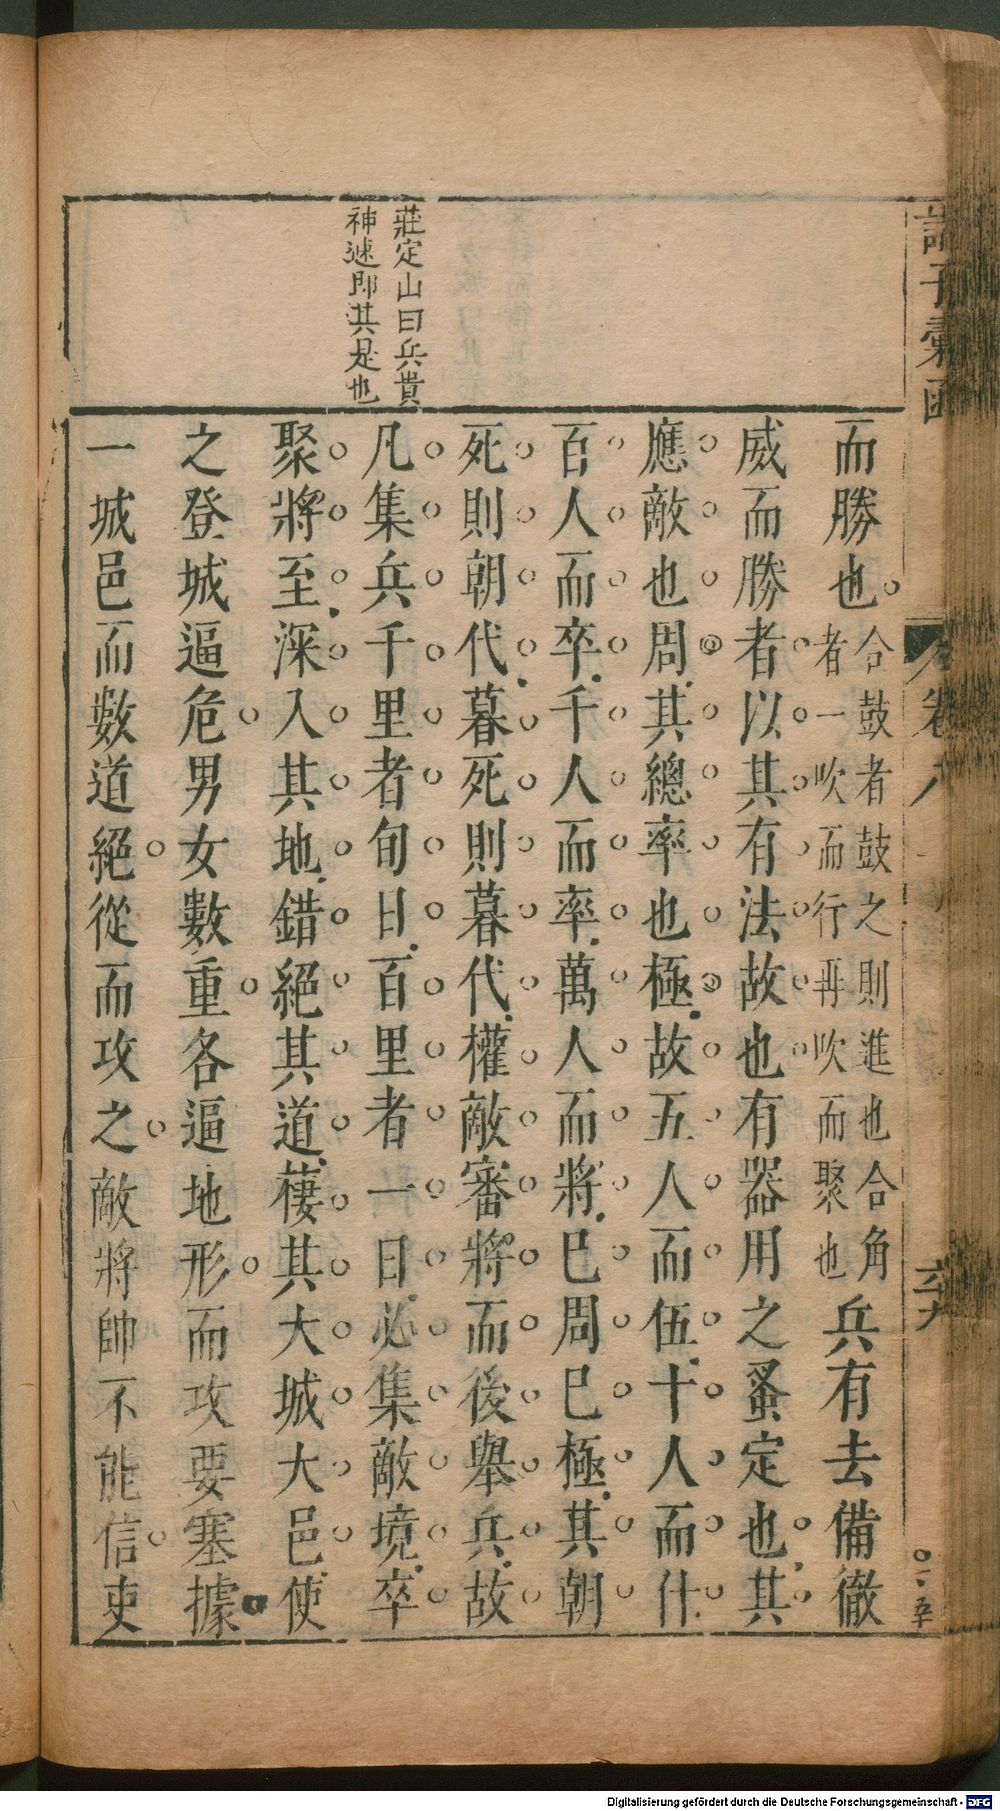 莊定山曰兵貴
神速即其是也
而勝也
合鼓者鼓之則進也合角
者一吹而行再吹而聚也
兵有去備徹
威而勝者以其有法故也有器用之蚤定也其
應敵也周其總率也極故五人而伍十人而什
百人而卒千人而率萬人而將巳周巳極其朝
死則朝代暮死則暮代權敵審將而後舉兵故
凡集兵千里者旬日百里者一日必集敵境卒
聚將至深入其地錯絕其道棲其大城大邑使
之登城逼危男女數重各逼地形而攻要塞據
一城邑而數道絕從而攻之敵將帥不能信吏
卷八
Digitalisierung gefördert durch die Deutsche Forschungsgemeinschaft - DFG